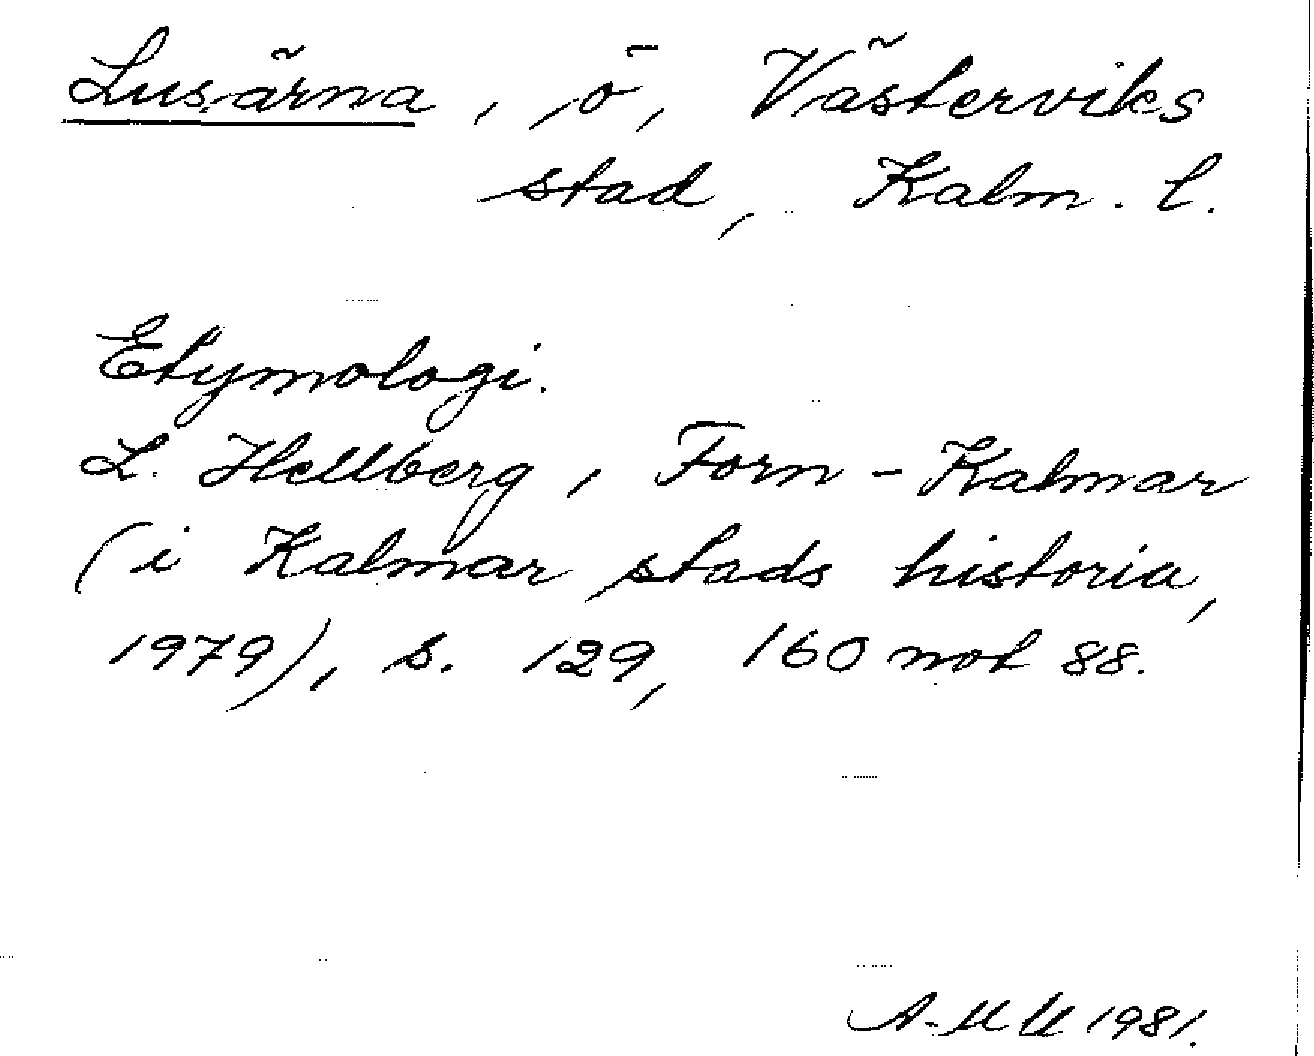 Lusärna, ö, Västerviks
stad, Kalm. l.
Etymologi.
L. Hellberg, Forn-Kalmar
(i Kalmar stads historia,
1979), s. 129, 160 not 88.
A-M U 1981.